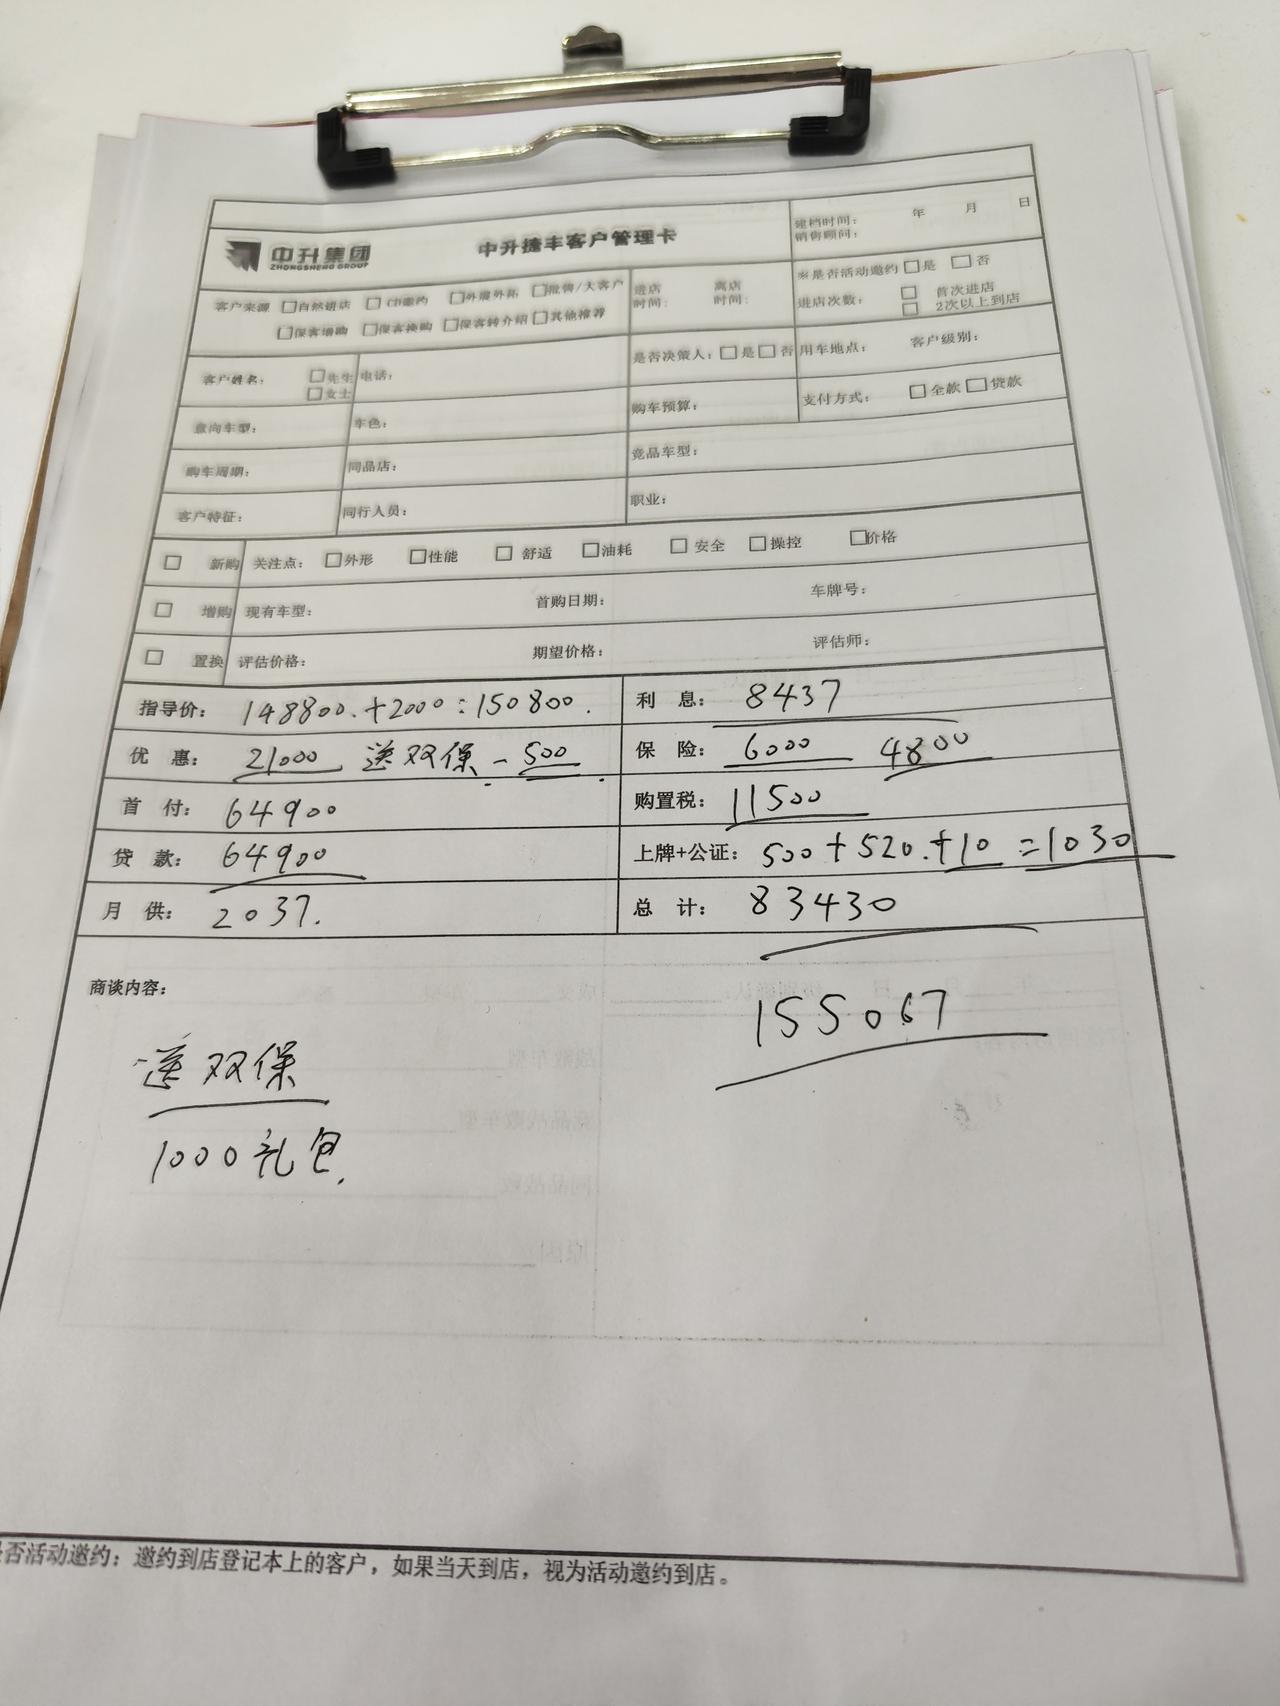 中升集团
ZHONGSHENG GROUP
中升捷丰客户管理卡
建档时间： 年 月 日
销售顾问：
客户来源 □自然进店 □CD邀约 □外展外拓 □批售/大客户
□保客增购 □保客换购 □保客转介绍 □其他推荐
进店时间： 离店时间：
※是否活动邀约 □是 □否
进店次数： □ 首次进店
□ 2次以上到店
客户姓名： □先生 □女士 电话：
是否决策人：□是□否 用车地点： 客户级别：
意向车型： 车色：
购车预算： 支付方式： □全款 □贷款
购车周期： 同品店： 竞品车型：
客户特征： 同行人员： 职业：
□ 新购 关注点： □外形 □性能 □舒适 □油耗 □安全 □操控 □价格
□ 增购 现有车型： 首购日期： 车牌号：
□ 置换 评估价格： 期望价格： 评估师：
指导价： 148800.+2000=150800. 利 息： 8437
优 惠： 21000 送双保 -500 保 险： 6000 4800
首 付： 64900 购置税： 11500
贷 款： 64900 上牌+公证： 500+520.+10=1030
月 供： 2037. 总 计： 83430
商谈内容：
155067
送双保
1000礼包.
是否活动邀约：邀约到店登记本上的客户，如果当天到店，视为活动邀约到店。